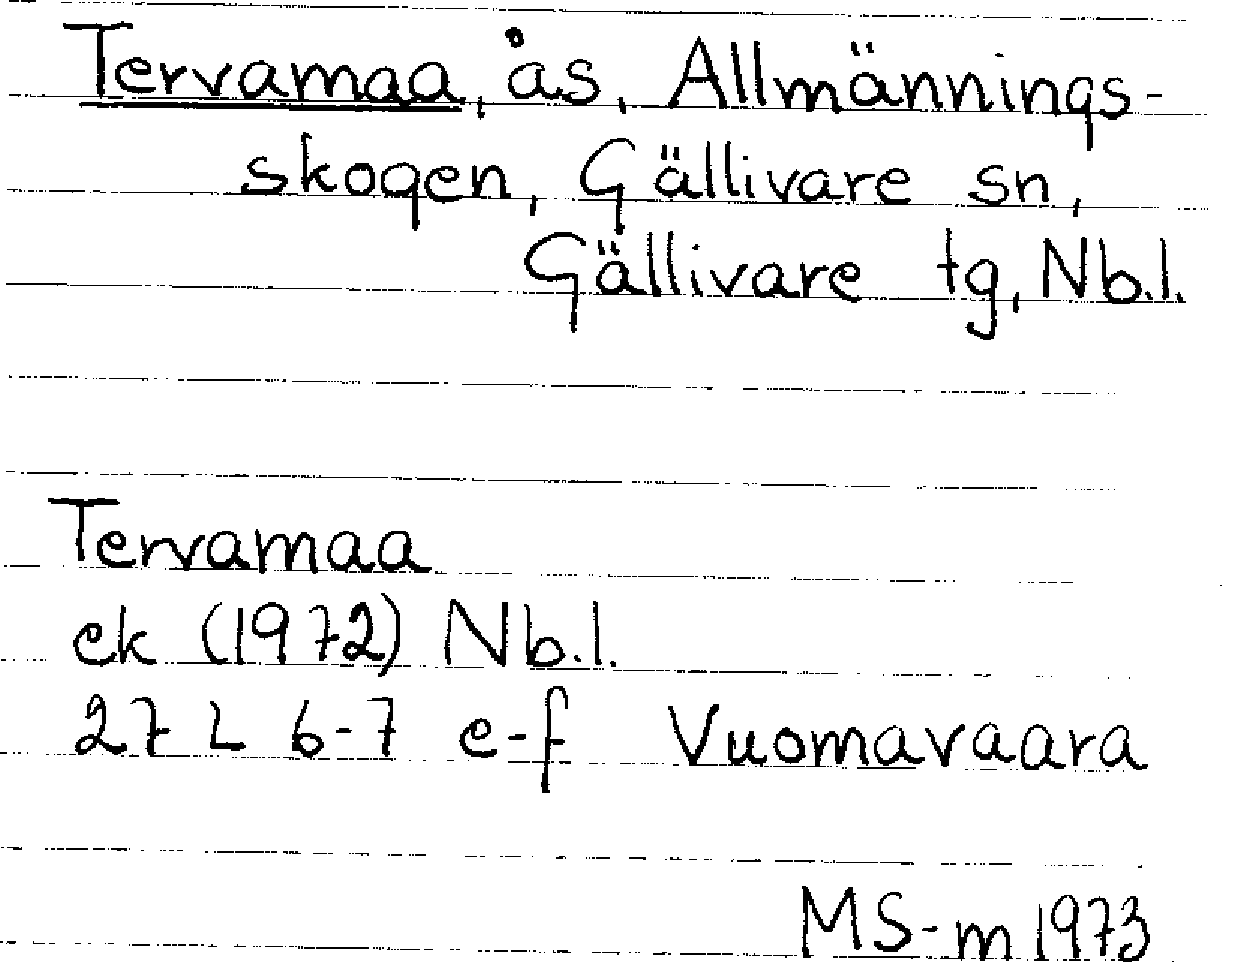 Tervamaa, ås, Allmännings-
skogen, Gällivare sn,
Gällivare tg, Nb.l.
Tervamaa
ek (1972) Nb.l.
27 L 6-7 e-f Vuomavaara
MS-m 1973